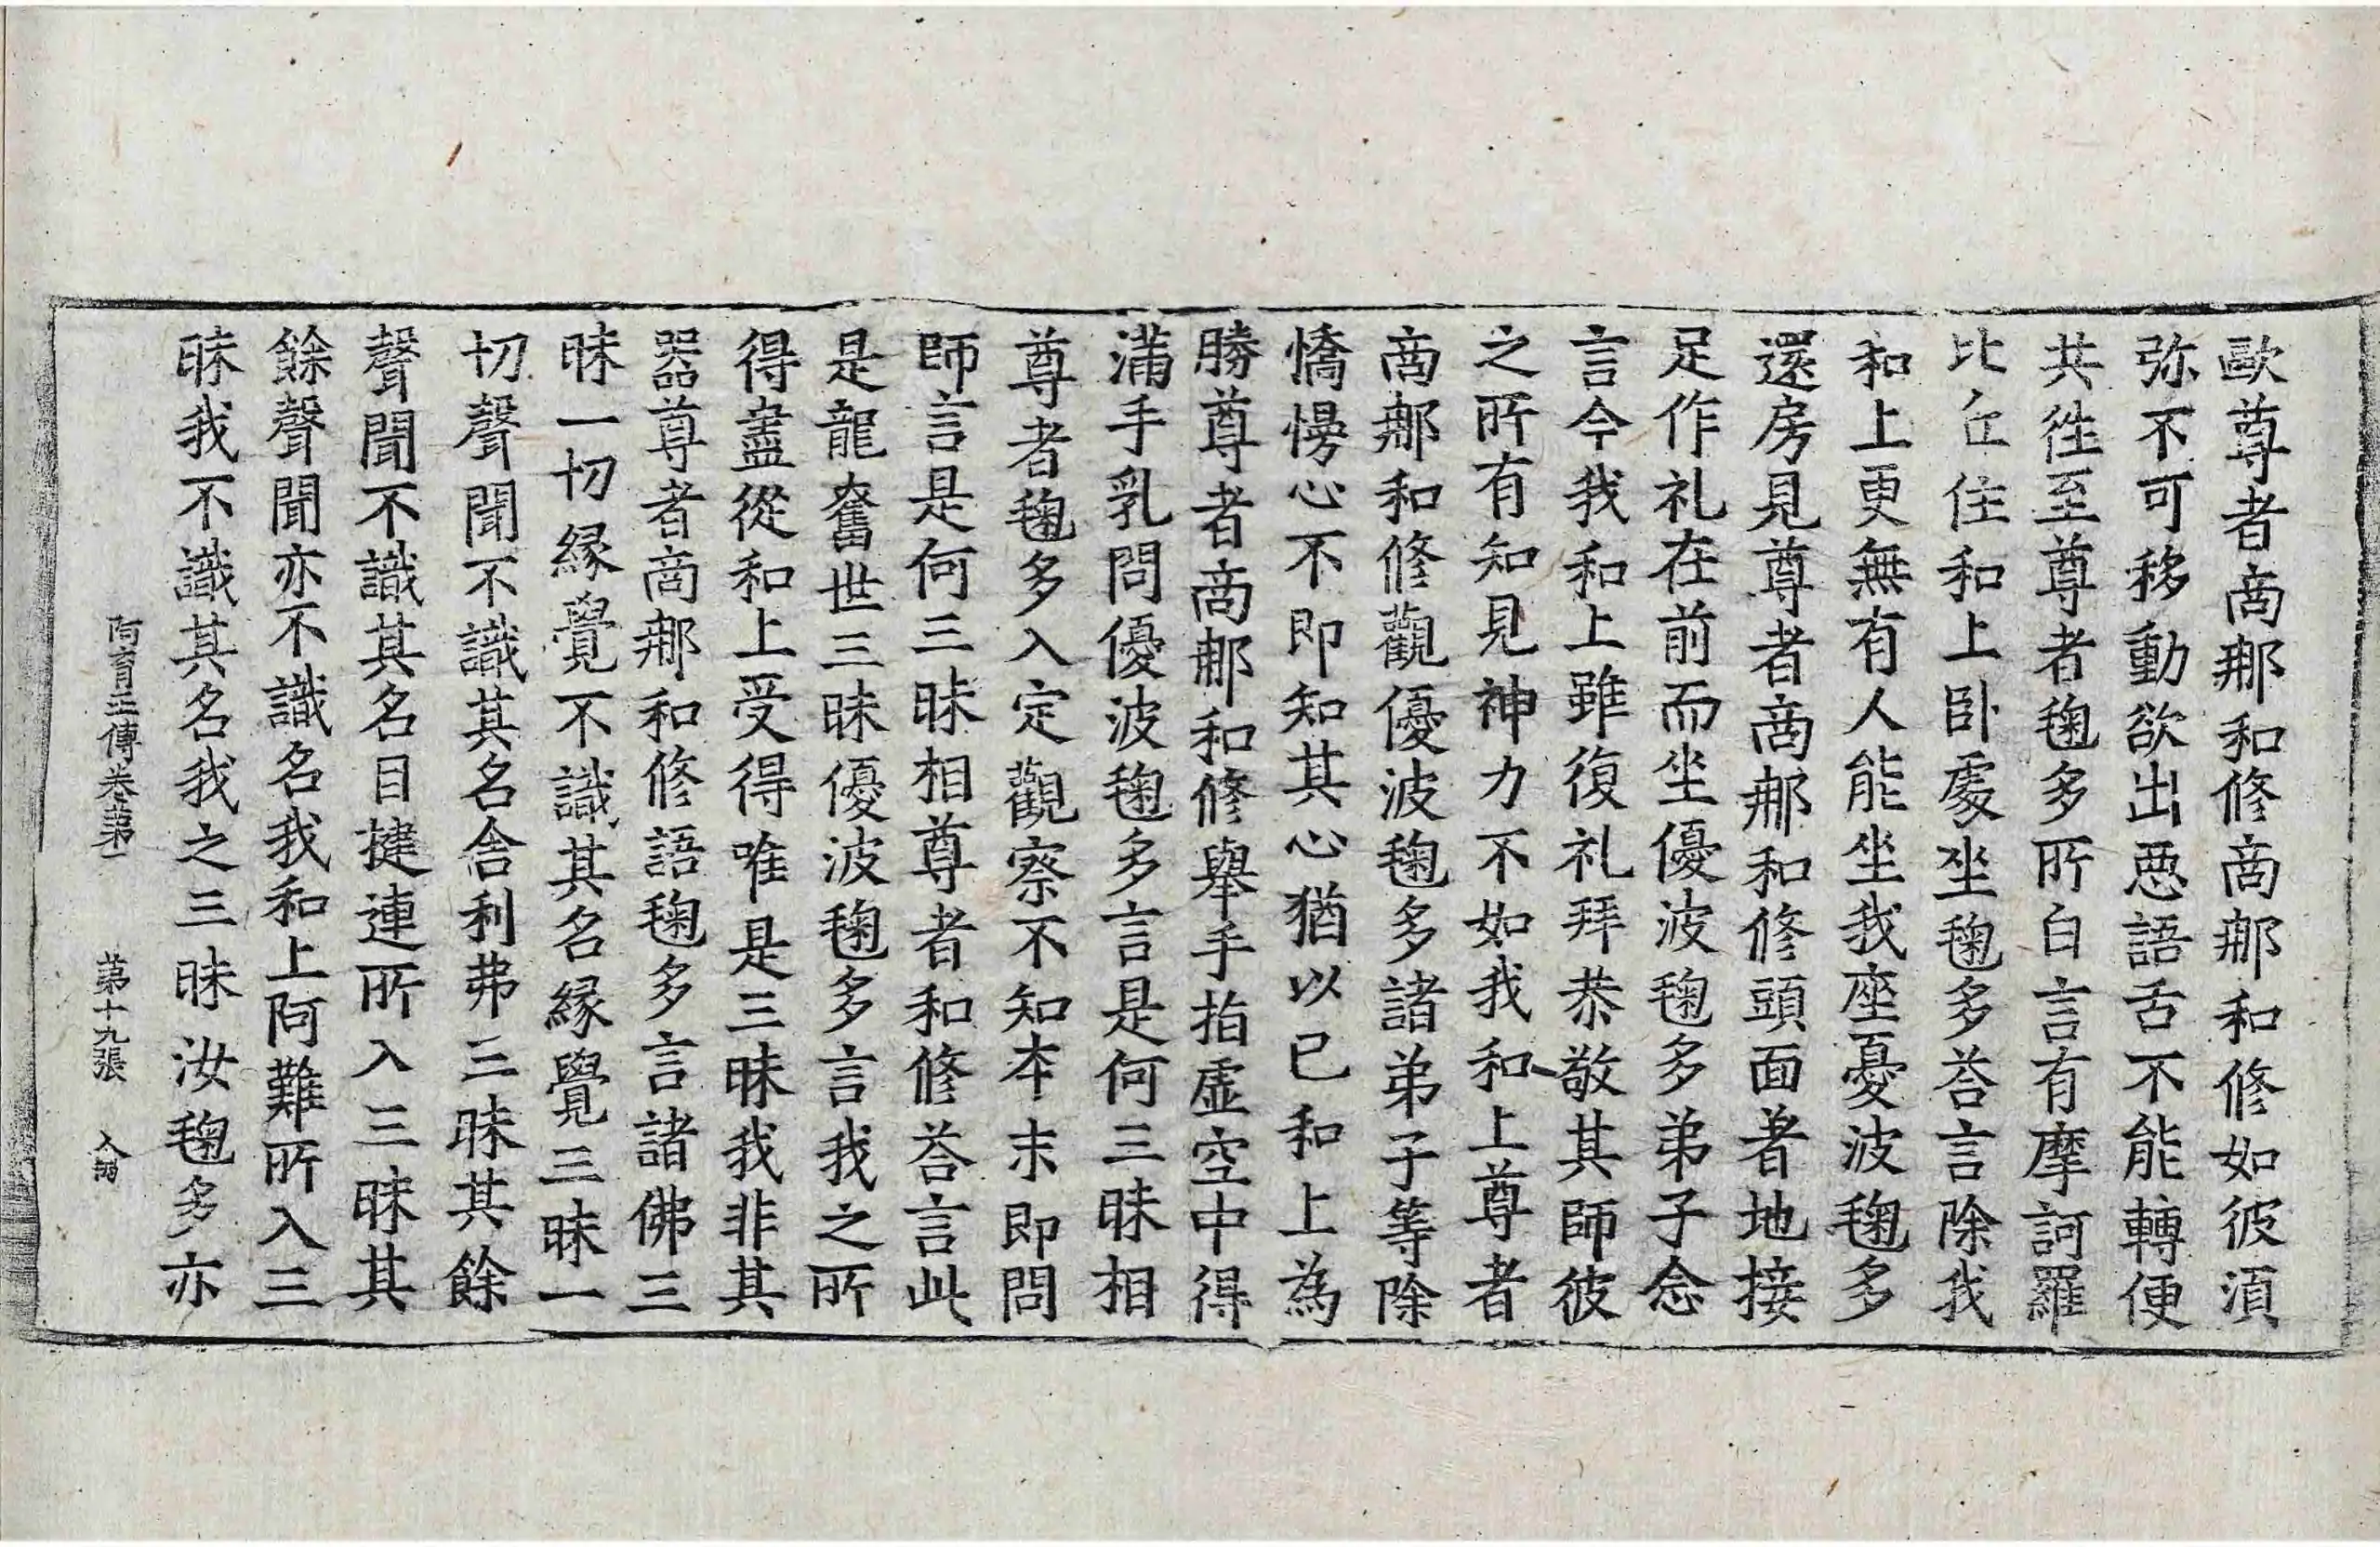 歐尊者商那和修商那和修如彼須
弥不可移動欲出惡語舌不能轉便
共徃至尊者毱多所白言有摩訶羅
比丘住和上卧處坐毱多荅言除我
和上更無有人能坐我座憂波毱多
還房見尊者商那和修頭面著地接
足作礼在前而坐優波毱多弟子念
言今我和上雖復礼拜恭敬其師彼
之所有知見神力不如我和上尊者
商那和修觀優波毱多諸弟子等除
憍慢心不即知其心猶以已和上為
勝尊者商那和修舉手指虛空中得
滿手乳問優波毱多言是何三昧相
尊者毱多入定觀察不知本末即問
師言是何三昧相尊者和修荅言此
是龍奮世三昧優波毱多言我之所
得盡從和上受得唯是三昧我非其
器尊者商那和修語毱多言諸佛三
昧一切緣覺不識其名緣覺三昧一
切聲聞不識其名舍利弗三昧其餘
聲聞不識其名目揵連所入三昧其
餘聲聞亦不識名我和上阿難所入三
昧我不識其名我之三昧汝毱多亦
阿育王傳卷第一 第十九張